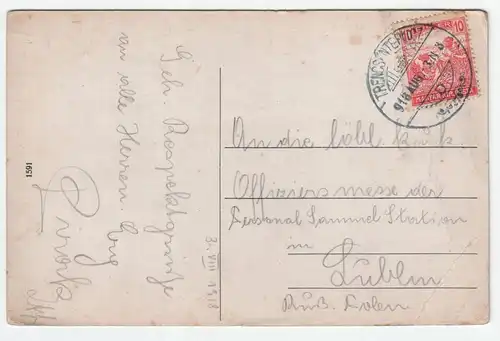 Geh. Respektgrüße
an alle Herren
1591
3. VIII 1918
TRENCSÉNTEPLIC
918 AUG
10
MAGYAR
An die löbl k.u.k
Offiziersmesse der
Personal Sammel Station
in
Lublin
Russ. Polen